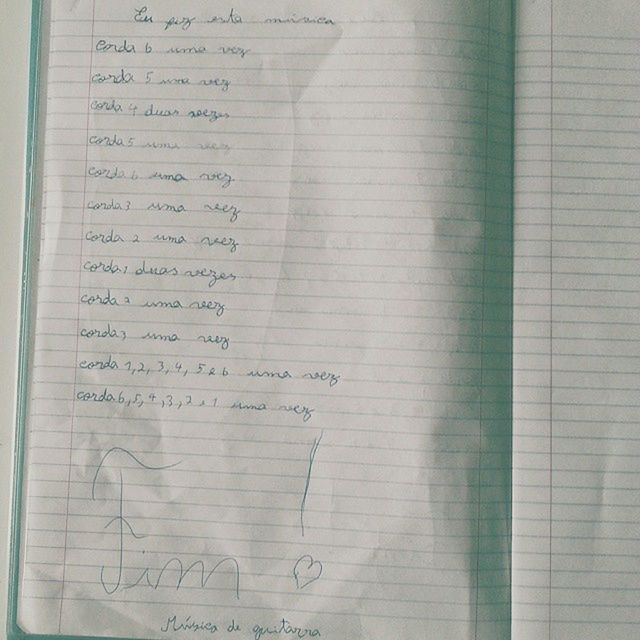 Eu fiz esta música
corda 6 uma vez
corda 5 uma vez
corda 4 duas vezes
corda 5 uma vez
corda 6 uma vez
corda 3 uma vez
corda 2 uma vez
corda 1 duas vezes
corda 2 uma vez
corda 3 uma vez
corda 1, 2, 3, 4, 5 e 6 uma vez
corda 6, 5, 4, 3, 2 e 1 uma vez
Fim!
Música de guitarra